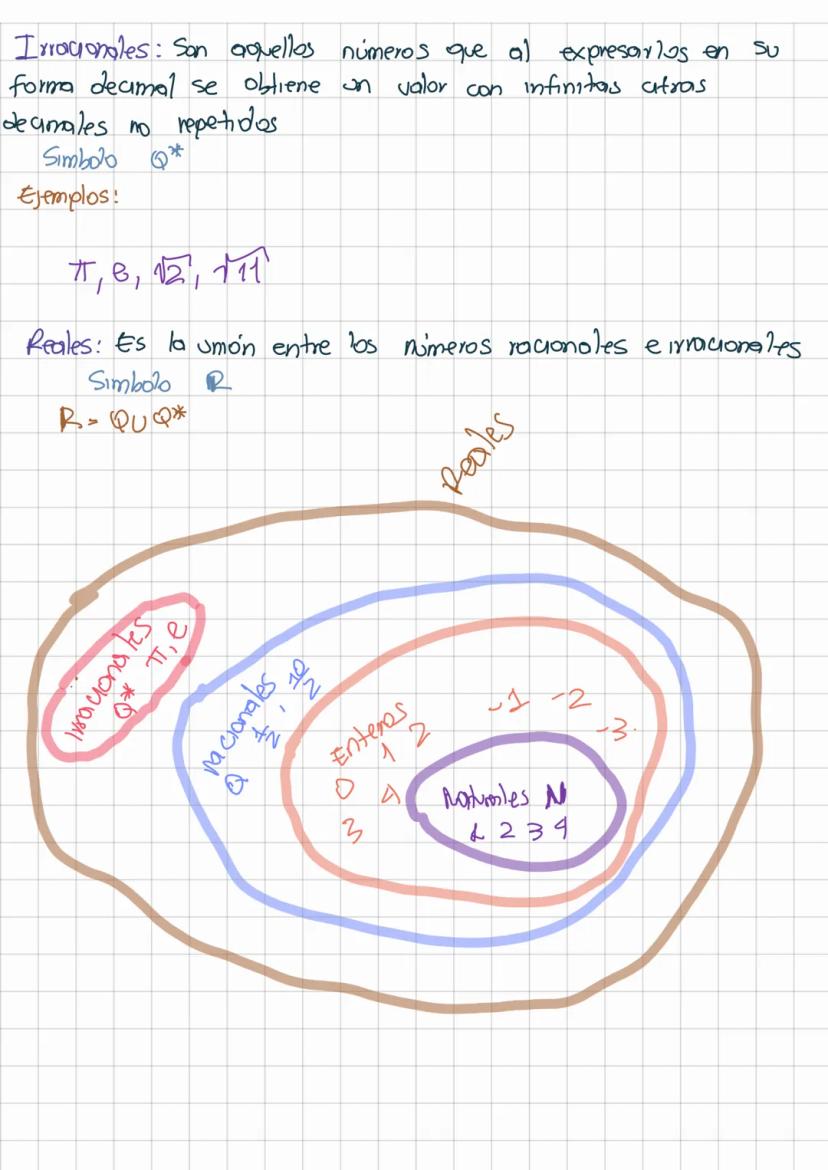 Irracionales: Son aquellos números que al expresarlos en su
forma decimal se obtiene un valor con infinitas cifras
decimales no repetidos
Simbolo Q*
Ejemplos:
π, e, √2, √11
Reales: Es la unión entre los números racionales e irracionales
Simbolo R
R = Q ∪ Q*
Reales
Irracionales
Q* π, e
racionales
Q 1/2, 10/2
Enteros
-1 -2
-3
1 2
0 4
3
Naturales N
1 2 3 4